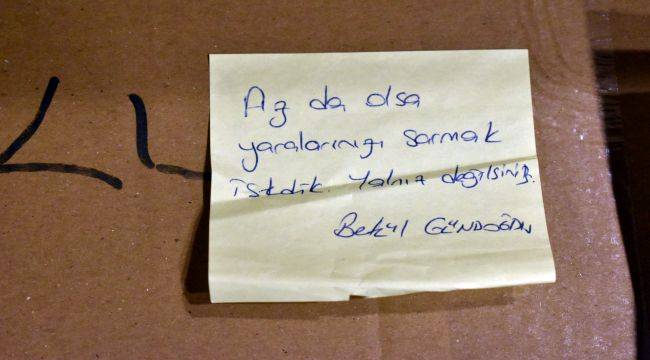 Az da olsa
yaralarınızı sarmak
istedik. Yalnız değilsiniz.
GÜNDOĞDU